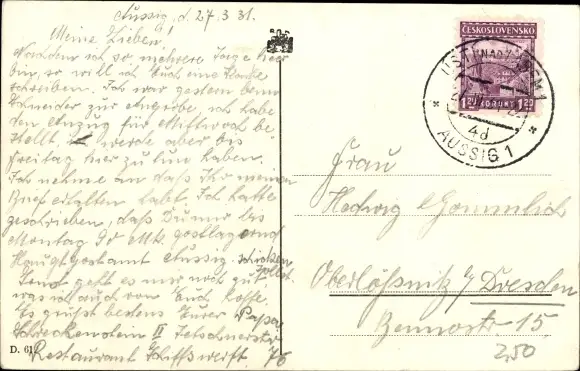 Aussig, d. 27.3.31.
Meine Lieben!
Nachdem ich so mehrere Tage hier
bin, so will ich Euch eine Karte
schreiben. Ich war gestern beim
Schneider zur Anprobe, ich habe
den Anzug für Mittwoch be-
stellt, werde aber bis
Freitag hier zu tun haben.
Ich nehme an daß Ihr meinen
Brief erhalten habt. Ich hatte
geschrieben, daß bis
Montag 90 Mk. postlagernd
Hauptpostamt Aussig schicken
sollst.
Sonst geht es mir noch gut
was ich auch von Euch hoffe.
Es grüßt bestens Euer Papa
Schreckenstein II Tetschnerstr.
Restaurant Schiffswerft. 76
D. 61
ČESKOSLOVENSKO
1.20 KORUNY 1.20
ÚSTÍ NAD LABEM 1
4d
* AUSSIG 1 *
Frau
Hedwig Gommlich
Oberlößnitz b/ Dresden
Bennostr. 15
2,50